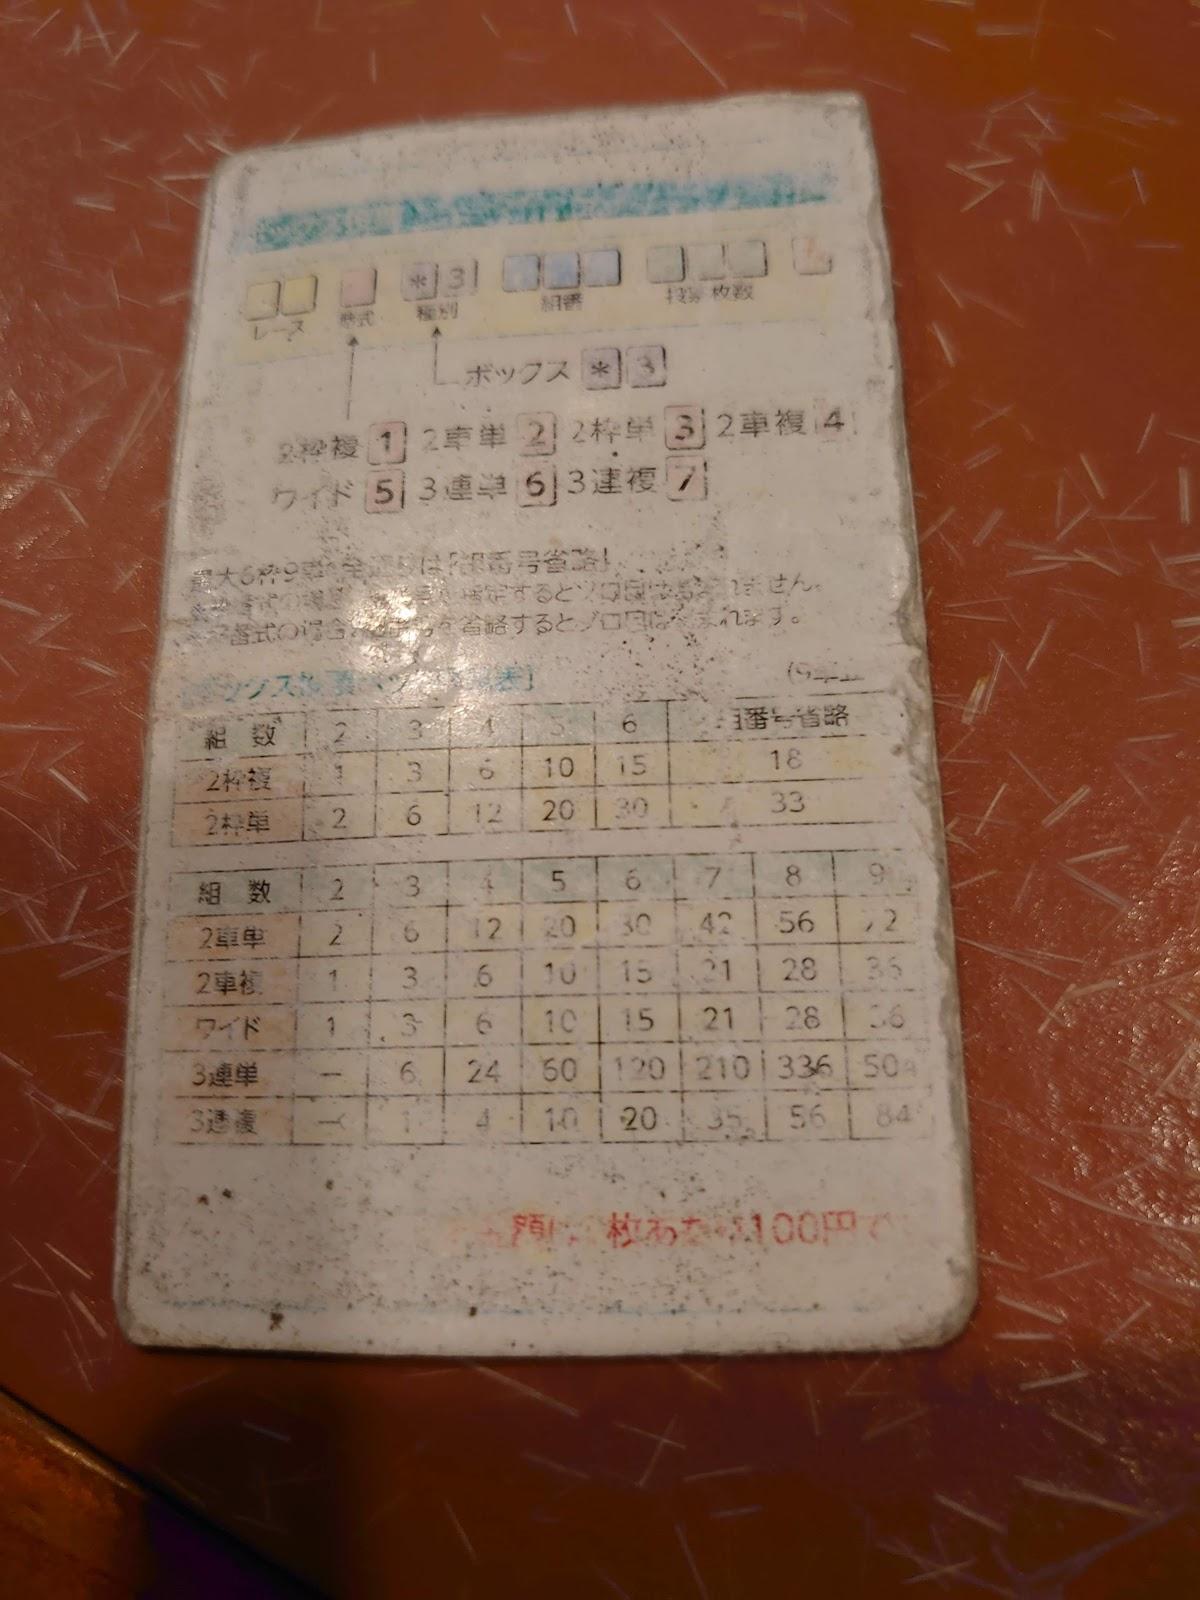 * 3
レース 賭式 種別 組番 投票枚数
ボックス * 3
2枠複 1 2車単 2 2枠単 3 2車複 4
ワイド 5 3連単 6 3連複 7
最大6枠9車
指定するとゾロ目は含まれません。
省略するとゾロ目は含まれます。
組 数 2 3 4 5 6 組番号省略
2枠複 1 3 6 10 15 18
2枠単 2 6 12 20 30 33
組 数 2 3 4 5 6 7 8 9
2車単 2 6 12 20 30 42 56 72
2車複 1 3 6 10 15 21 28 36
ワイド 1 3 6 10 15 21 28 36
3連単 − 6 24 60 120 210 336 504
3連複 − 1 4 10 20 35 56 84
枚あたり100円で